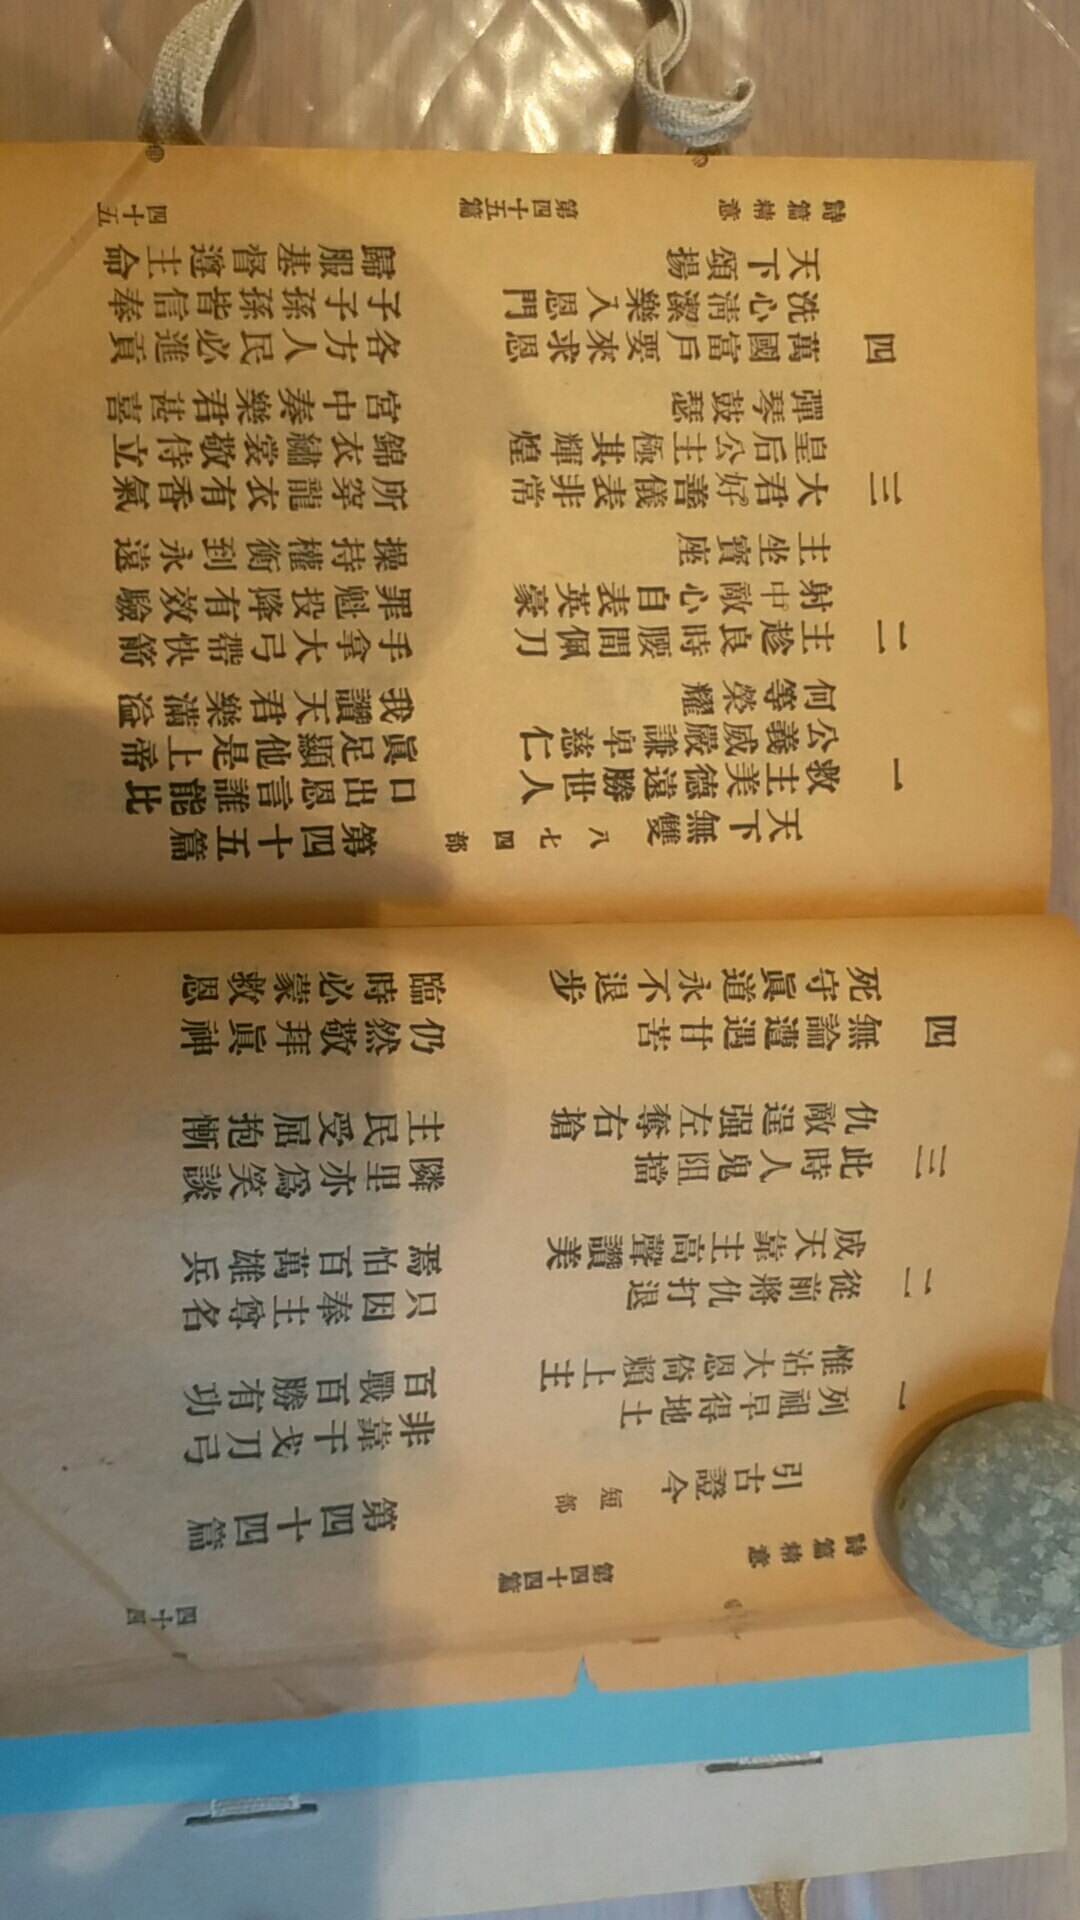 詩篇精意 第四十四篇 四十四
第四十四篇
引古證今 短部
一 列祖早得地土 非靠干戈刀弓
惟沾大恩倚賴上主 百戰百勝有功
二 從前將仇打退 只因奉主尊名
成天靠主高聲讚美 焉怕百萬雄兵
三 此時人鬼阻擋 隣里亦爲笑談
仇敵逞强左奪右搶 主民受屈抱慚
四 無論遭遇甘苦 仍然敬拜眞神
死守眞道永不退步 臨時必蒙救恩
第四十五篇
天下無雙 八七四部
一 救主美德遠勝世人 口出恩言誰能比
公義威嚴謙卑慈仁 眞足顯他是上帝
何等榮耀 我讚天君樂滿溢
二 主趁良時腰間佩刀 手拿大弓帶快箭
射中敵心自表英豪 罪魁投降有效驗
主坐寶座 操持權衡到永遠
三 大君好善儀表非常 所穿龍衣有香氣
皇后公主極其輝煌 錦衣繡裳敬侍立
彈琴鼓瑟 宮中奏樂君甚喜
四 萬國富戶要來求恩 各方人民必進貢
洗心淸潔樂入恩門 子子孫孫皆信奉
天下頌揚 歸服基督遵主命
詩篇精意 第四十五篇 四十五